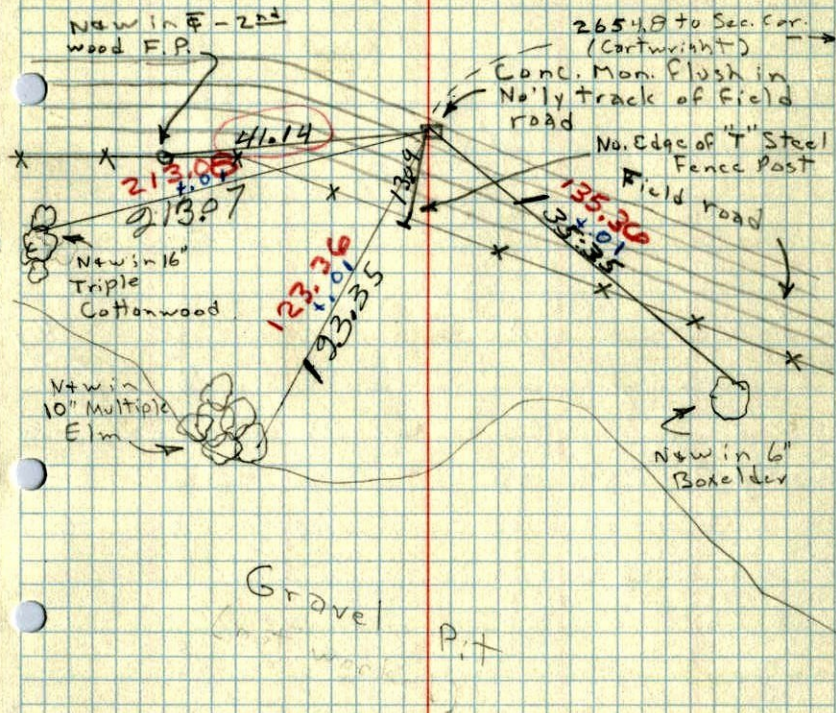 N&W in ℄ - 2nd
wood F.P.
2654.8 to Sec. Cor.
(Cartwright)
Conc. Mon. flush in
No'ly track of Field
road
41.14
No. Edge of "T" Steel
Fence Post
Field road
213.08
+.01
213.07
13.9
135.36
+.01
135.35
N&W in 16"
Triple
Cottonwood
123.36
+.01
123.35
N&W in
10" Multiple
Elm
N&W in 6"
Boxelder
Gravel Pit
(not